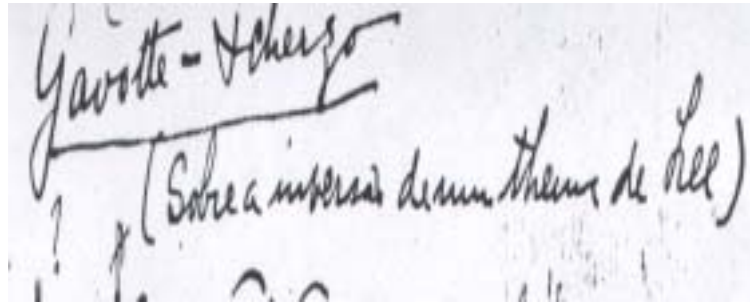 Gavotte - Scherzo
(Sobre a inversão de um thema de Lee)